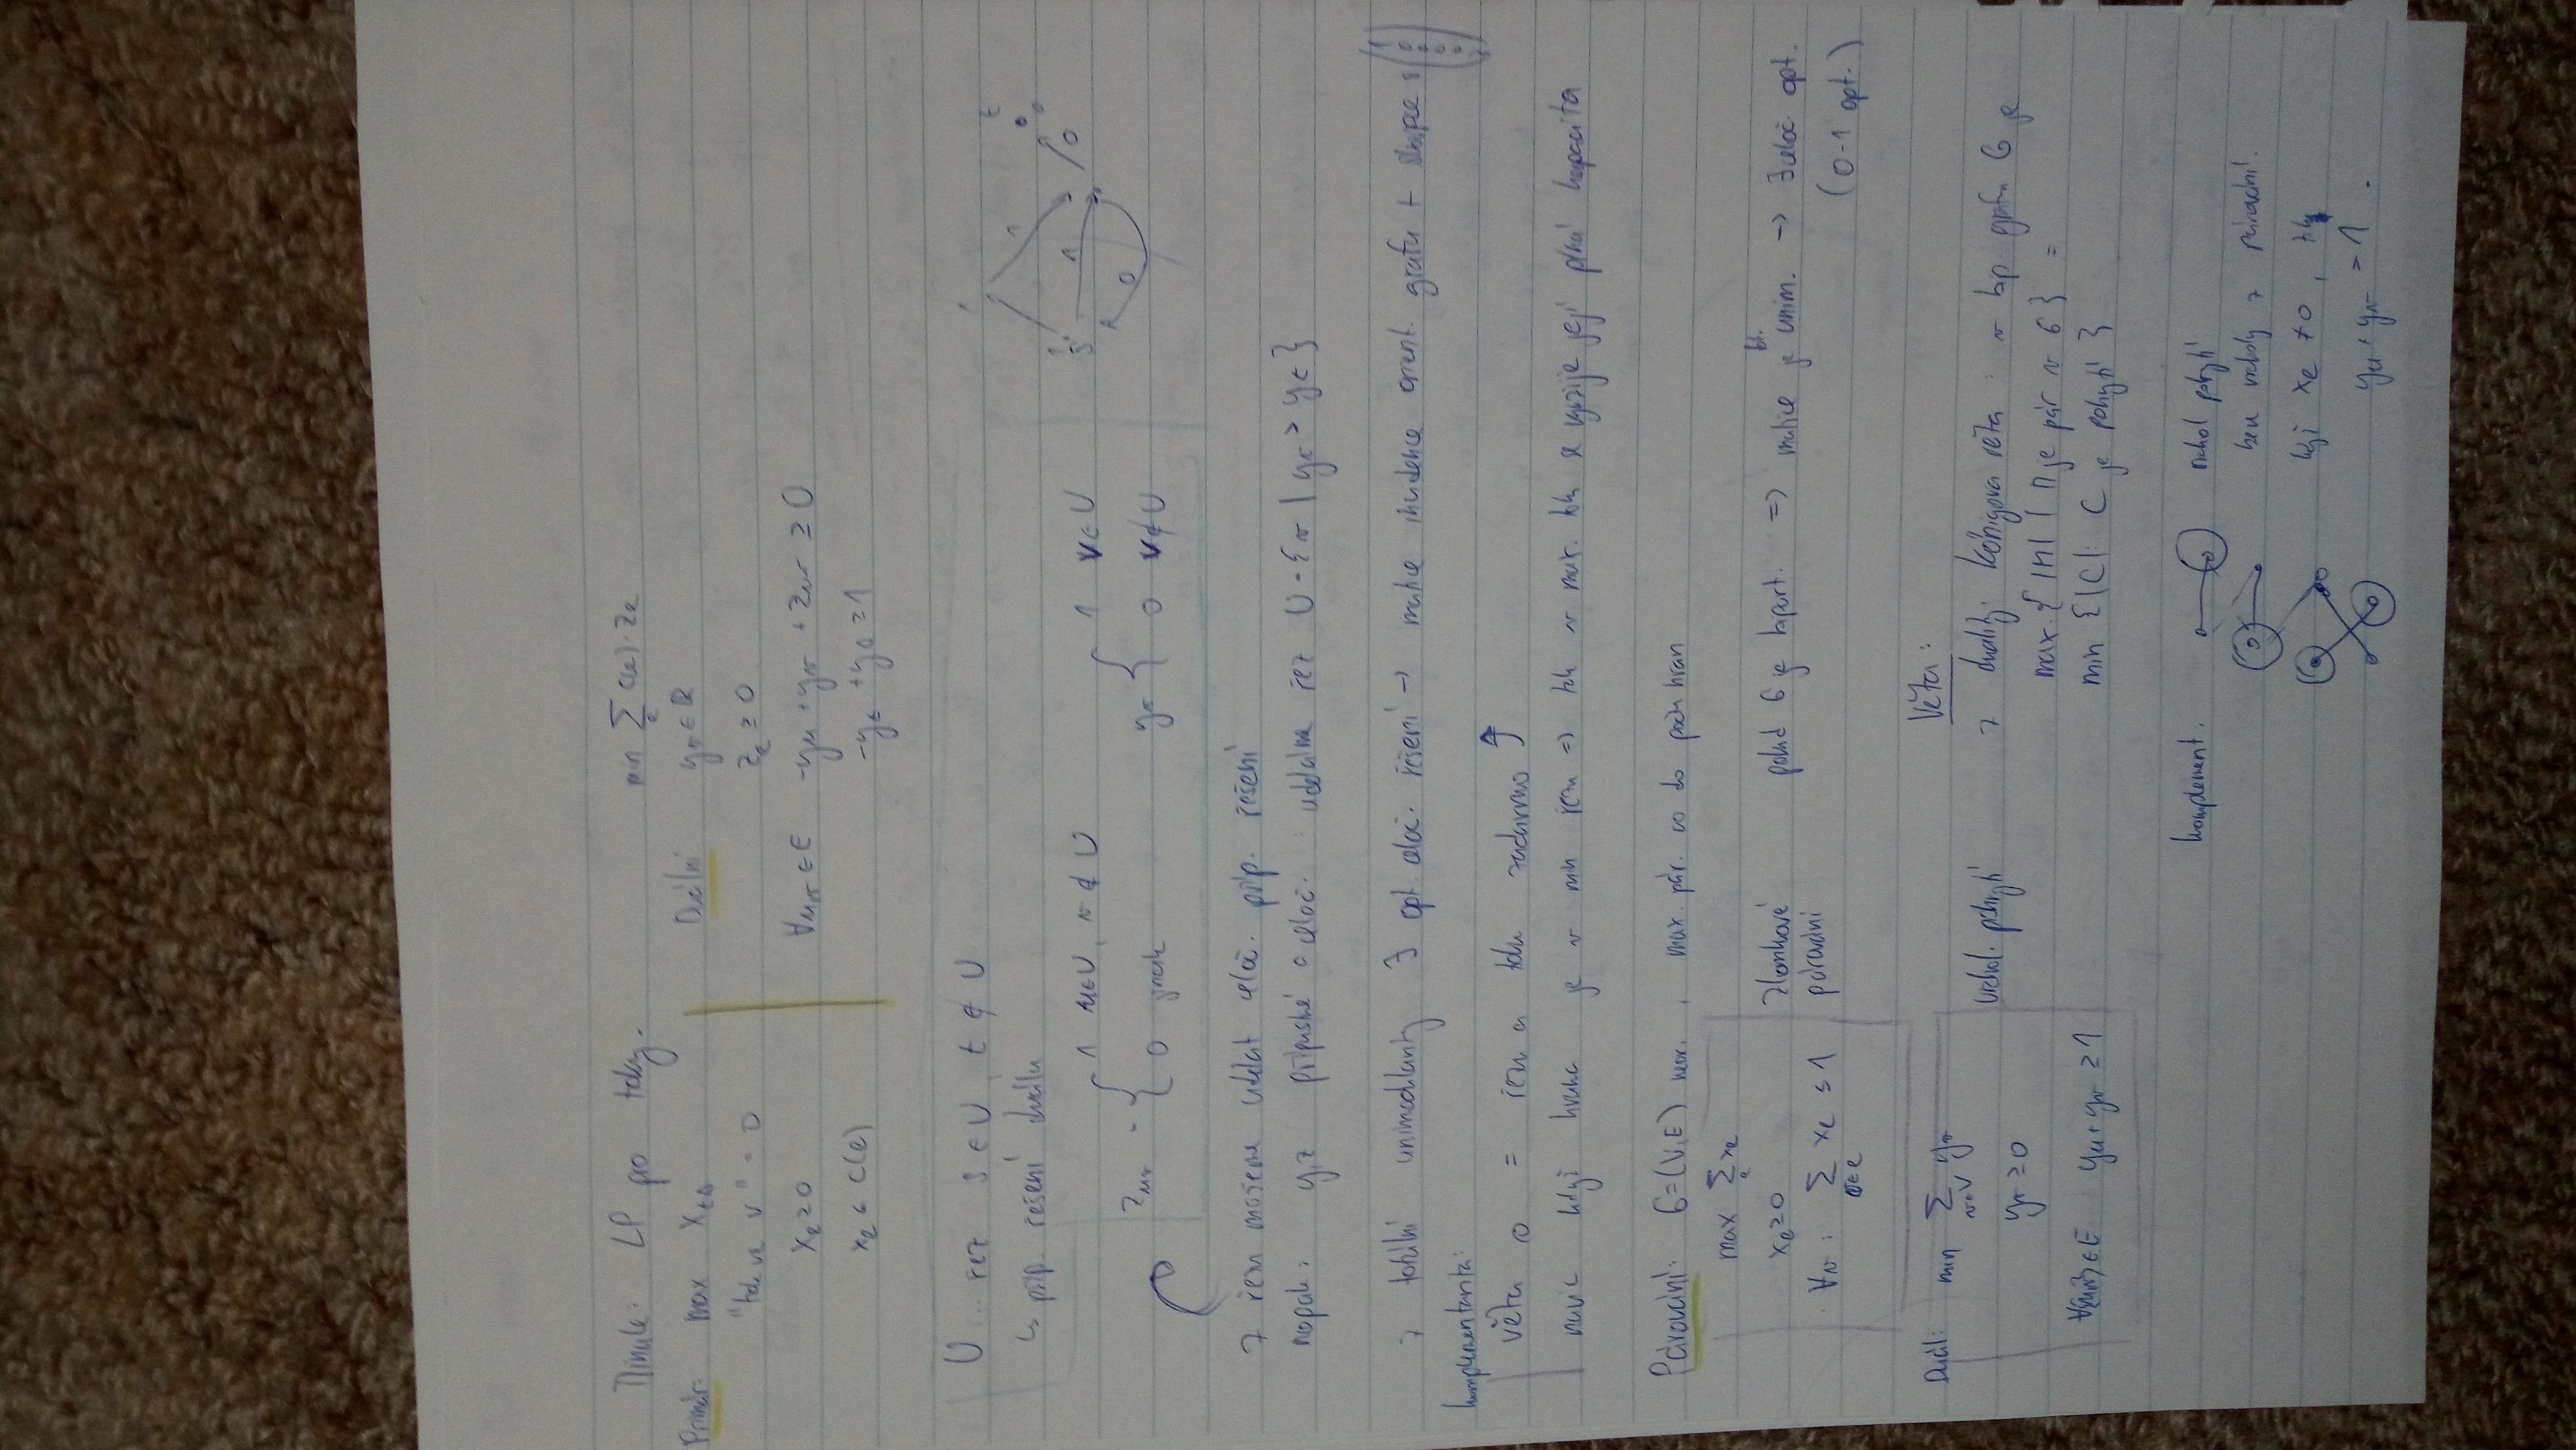 Minule: LP pro toky.
min ∑_e c(e)·z_e
Primár: max x_ts
Duální: y_v ∈ ℝ
"tok ve v" = 0
z_e ≥ 0
x_e ≥ 0
∀uv ∈ E -y_u + y_v + z_uv ≥ 0
x_e ≤ c(e)
-y_t + y_s ≥ 1
U ... řez s ∈ U, t ∉ U
↳ příp. řešení duálu
z_uv = { 1 u∈U, v ∉ U
0 jinak
y_v { 1 v∈U
0 v∉U
s 1 1 1 0 0 t
z řezu můžeme udělat celoč. příp. řešení
nopak: y,z přípustné a celoč. : uděláme řez U = {v | y_v > y_t}
z totální unimodularity ∃ opt. celoč. řešení → matice incidence orient. grafu + sloupce
komplementarita:
věta o = řezu a toku zadarmo
navíc když hrana je v min řezu ⇒ tak v max. toku se využije její plná kapacita
Párování: G=(V,E) neor., max. pár. co do počtu hran
max ∑_e x_e
x_e ≥ 0
∀v: ∑_{v∈e} x_e ≤ 1
Zlomkové
párování
pokud G je bipart. ⇒ matice je tot. unim. → ∃ celoč. opt.
(0-1 opt.)
Duál: min ∑_{v∈V} y_v
y_v ≥ 0
∀{u,v} ∈ E y_u + y_v ≥ 1
vrchol. pokrytí
Věta:
z duality: Königova věta : v bip. grafu G je
max. { |M| | M je pár v G } =
min { |C|: C je pokrytí }
komplement.
vrchol pokrytí
bere vrcholy z párování.
když x_e ≠ 0, tak
y_u + y_v = 1.